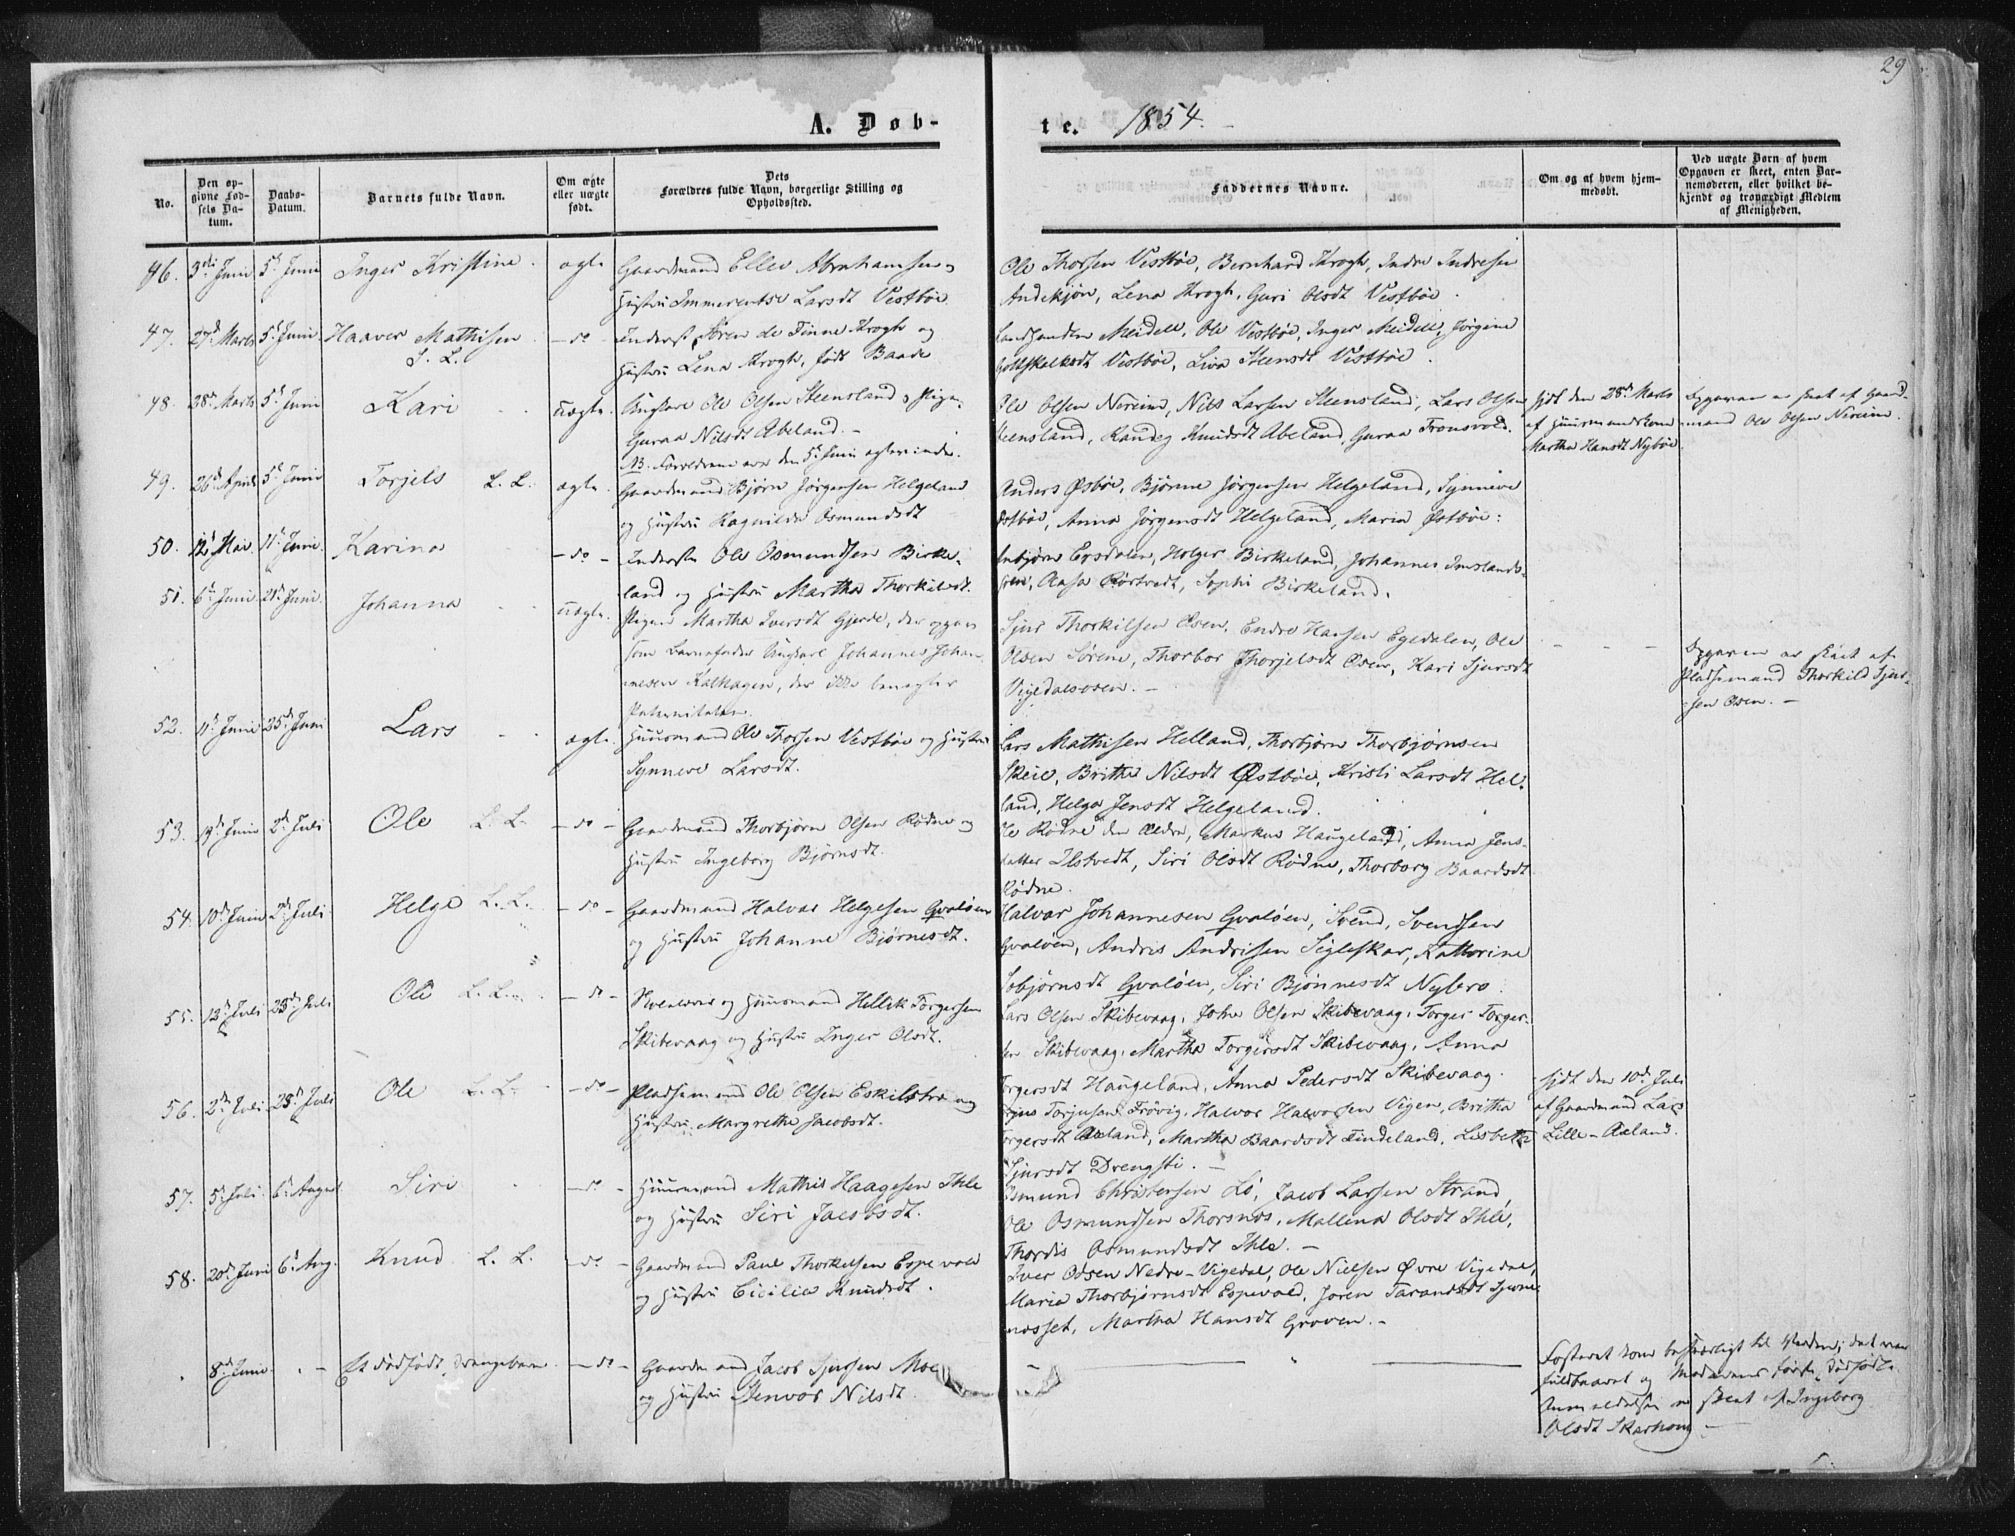 29
A. Døb-
te. 1854.
No.
Den op-
givne Fød-
sels Da-
tum.
Daabs-
Datum.
Barnets fulde Navn.
Om ægte
eller uægte
født.
Dets
Forældres fulde Navn, borgerlige Stilling og
Opholdssted.
Faddernes Navne.
Om og af hvem hjem-
medøbt.
Ved uægte Børn af hvem
Opgaven er skeet, enten Bar-
nemoderen, eller hvilket be-
kjendt og troværdigt Medlem
af Menigheden.
46. 3di Juni 5t Juni Inger Kristine. ægte Gaardmand Ellev Abrahamsen,
Hustru Immerentse Larsdt Vestbøe
Ole Thorsen Vestbøe, Bernhard Krogh, Indre Indresen
Andekjøn, Lena Krogh, Guri Olsdt Vestbøe.
47. 27d Marts 5t Juni Haaver Mathisen - do - Inderst Søren de Finne Krogh og
S. L. Hustru Lena Krogh, født Baade
Landhandler Meidell, Ole Vestbøe, Inger Meidell, Jørgine
Gottskalksdt Vestbøe, Liva Steensdt Vestbøe.
48. 28d Marts 5t Juni Kari uægte. Ungkarl Ole Olsen Steensland, Pige
Guraa Nilsdt Abeland. -
NB. Forældrene ere den 5t Juni ægteviede.
Ole Olsen Nereim, Nils Larsen Steensland, Lars Olsen
Steensland, Randeg Knudsdt Abeland, Guraa Tronsvold.
hjdt den 28d Marts
af Huusmandskone
Martha Hansdt Nybøe
Opgaven er skeet af Gaard-
mand Ole Olsen Nereim.
49. 26d April 5t Juni Torjels L. L. ægte. Gaardmand Bjørn Jørgensen Helgeland
og Hustru Ragnilda Osmundsdt
Anders Østbøe, Bjørne Jørgensen Helgeland, Synneve
Østbøe, Anna Jørgensdt Helgeland, Maria Østbøe.
50. 12t Mai 11t Juni. Karina - do - Inderste Ole Osmundsen Birke-
land og Hustru Martha Thorkilsdt.
Enbjørn Ersdalen, Holger Birkeland, Johannes Imslands-
Aasa Rørtvedt, Sophi Birkeland.
51. 6t Juni 21d Juni. Johanna uægte. Pigen Martha Iversdt Gjerde, der opgav
som Barnefader Ungkarl Johannes Johan-
nesen Kalhagen, der ikke benægter
Paterniteten.
Sjur Thorkilsen Osen, Endre Hansen Egedalen, Ole
Olsen Sørene, Thorbor Thorjelsdt Osen, Kari Sjursdt
Vigedalsosen. -
Opgaven er skeet af
Pladsemand Thorkild Sjur-
sen Osen. -
52. 11t Juni 25d Juni Lars ægte. Huusmand Ole Thorsen Vestbøe og Hustru
Synneve Larsdt.
Lars Mathisen Helland, Thorbjørn Thorbjørnsen
Skeie, Britha Nilsdt Østbøe, Kristi Larsdt Hel-
land, Helga Jensdt Helgeland.
53. 19d Juni 2d Juli Ole L. L. - do - Gaardmand Thorbjørn Olsen Rødne og
Hustru Ingeborg Bjørnsdt.
Ole Rødne den Ældre, Markus Haugeland, Anna Jens-
datter Ilstvedt, Siri Olsdt Rødne, Thorborg Baardsdt
Rødne.
54. 10d Juni 2d Juli Helge L. L. - do - Gaardmand Halvar Helgesen Qvaløen
og Hustru Johanne Bjørnesdt.
Halvar Johannesen Qvaløen, Svend Svendsen
Qvaløen, Andris Andrisen Sigleskar, Kathorine
Qvaløen, Siri Bjønnesdt Nybro.
55. 13d Juli 23d Juli Ole L. L. - do - og Huusmand Hellik Torgersen
Skibevaag og Hustru Inger Olsdt.
Lars Olsen Skibevaag, John Olsen Skibevaag, Torger Torger-
sen Skibevaag, Martha Torgersdt Skibevaag, Anna
Torgersdt Haugeland, Anna Pedersdt Skibevaag.
56. 2d Juli 23d Juli Ole L. L. - do - Pladsemand Ole Olsen Eskilstræ og
Hustru Margrethe Jacobsdt.
Torjusen Frøvig, Halvor Halvorsen Vigen, Britha
Torgersdt Aaland, Martha Baardsdt Tindeland, Lisbeth
Sjursdt Drengsti. -
hjdt den 10d Juli
af Gaardmand Lars
Lille-Aaland.
57. 5t Juli 6t August Siri - do - Huusmand Mathis Haagesen Ihle
og Hustru Siri Jacobsdt.
Osmund Christensen Lø, Jacob Larsen Strand,
Ole Osmundsen Thorsnæs, Mallena Olsdt Ihle,
Thordis Osmundsdt Ihle. -
58. 20d Juni 6t Aug. Knud L. L. - do - Gaardmand Paul Thorkelsen Espevold
og Hustru Cicilia Knudsdt.
Iver Odsen Nedre-Vigedal, Ole Nielsen Øvre Vigedal,
Maria Thorbjørnsdt Espevold, Joren Tarandsdt
Martha Hansdt Groven. -
8d Juni. - Et dødfødt Drengebarn - do - Gaardmand Jacob Sjursen Moe
og Hustru Jenvor Nilsdt.
Fosteret kom besværligt til Verden; det var
fuldbaaret og Moderens første dødfødte.
Anmeldelsen er skeet af Ingeborg
Olsdt Skarhoug -